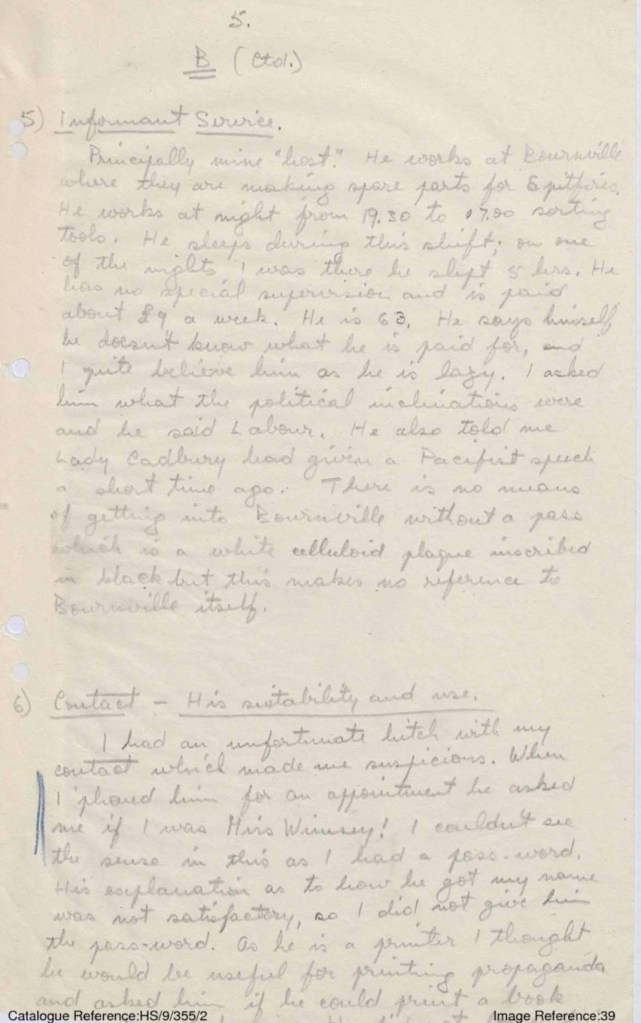 5.
B (Ctd.)
5) Informant Service.
Principally mine "host". He works at Bournville
where they are making spare parts for Spitfires.
He works at night from 19.30 to 07.00 sorting
tools. He sleeps during this shift; on one
of the nights I was there he slept 5 hrs. He
has no special supervision and is paid
about £9 a week. He is 63. He says himself
he doesn't know what he is paid for, and
I quite believe him as he is lazy. I asked
him what the political inclinations were
and he said Labour. He also told me
Lady Cadbury had given a Pacifist speech
a short time ago. There is no means
of getting into Bournville without a pass
which is a white celluloid plaque inscribed
in black but this makes no reference to
Bournville itself.
6) Contact - His suitability and use.
I had an unfortunate hitch with my
contact which made me suspicious. When
I 'phoned him for an appointment he asked
me if I was Miss Wimsey! I couldn't see
the sense in this as I had a pass-word.
His explanation as to how he got my name
was not satisfactory, so I did not give him
the pass-word. As he is a printer I thought
he would be useful for printing propaganda
and asked him if he could print a book
Catalogue Reference:HS/9/355/2
Image Reference:39